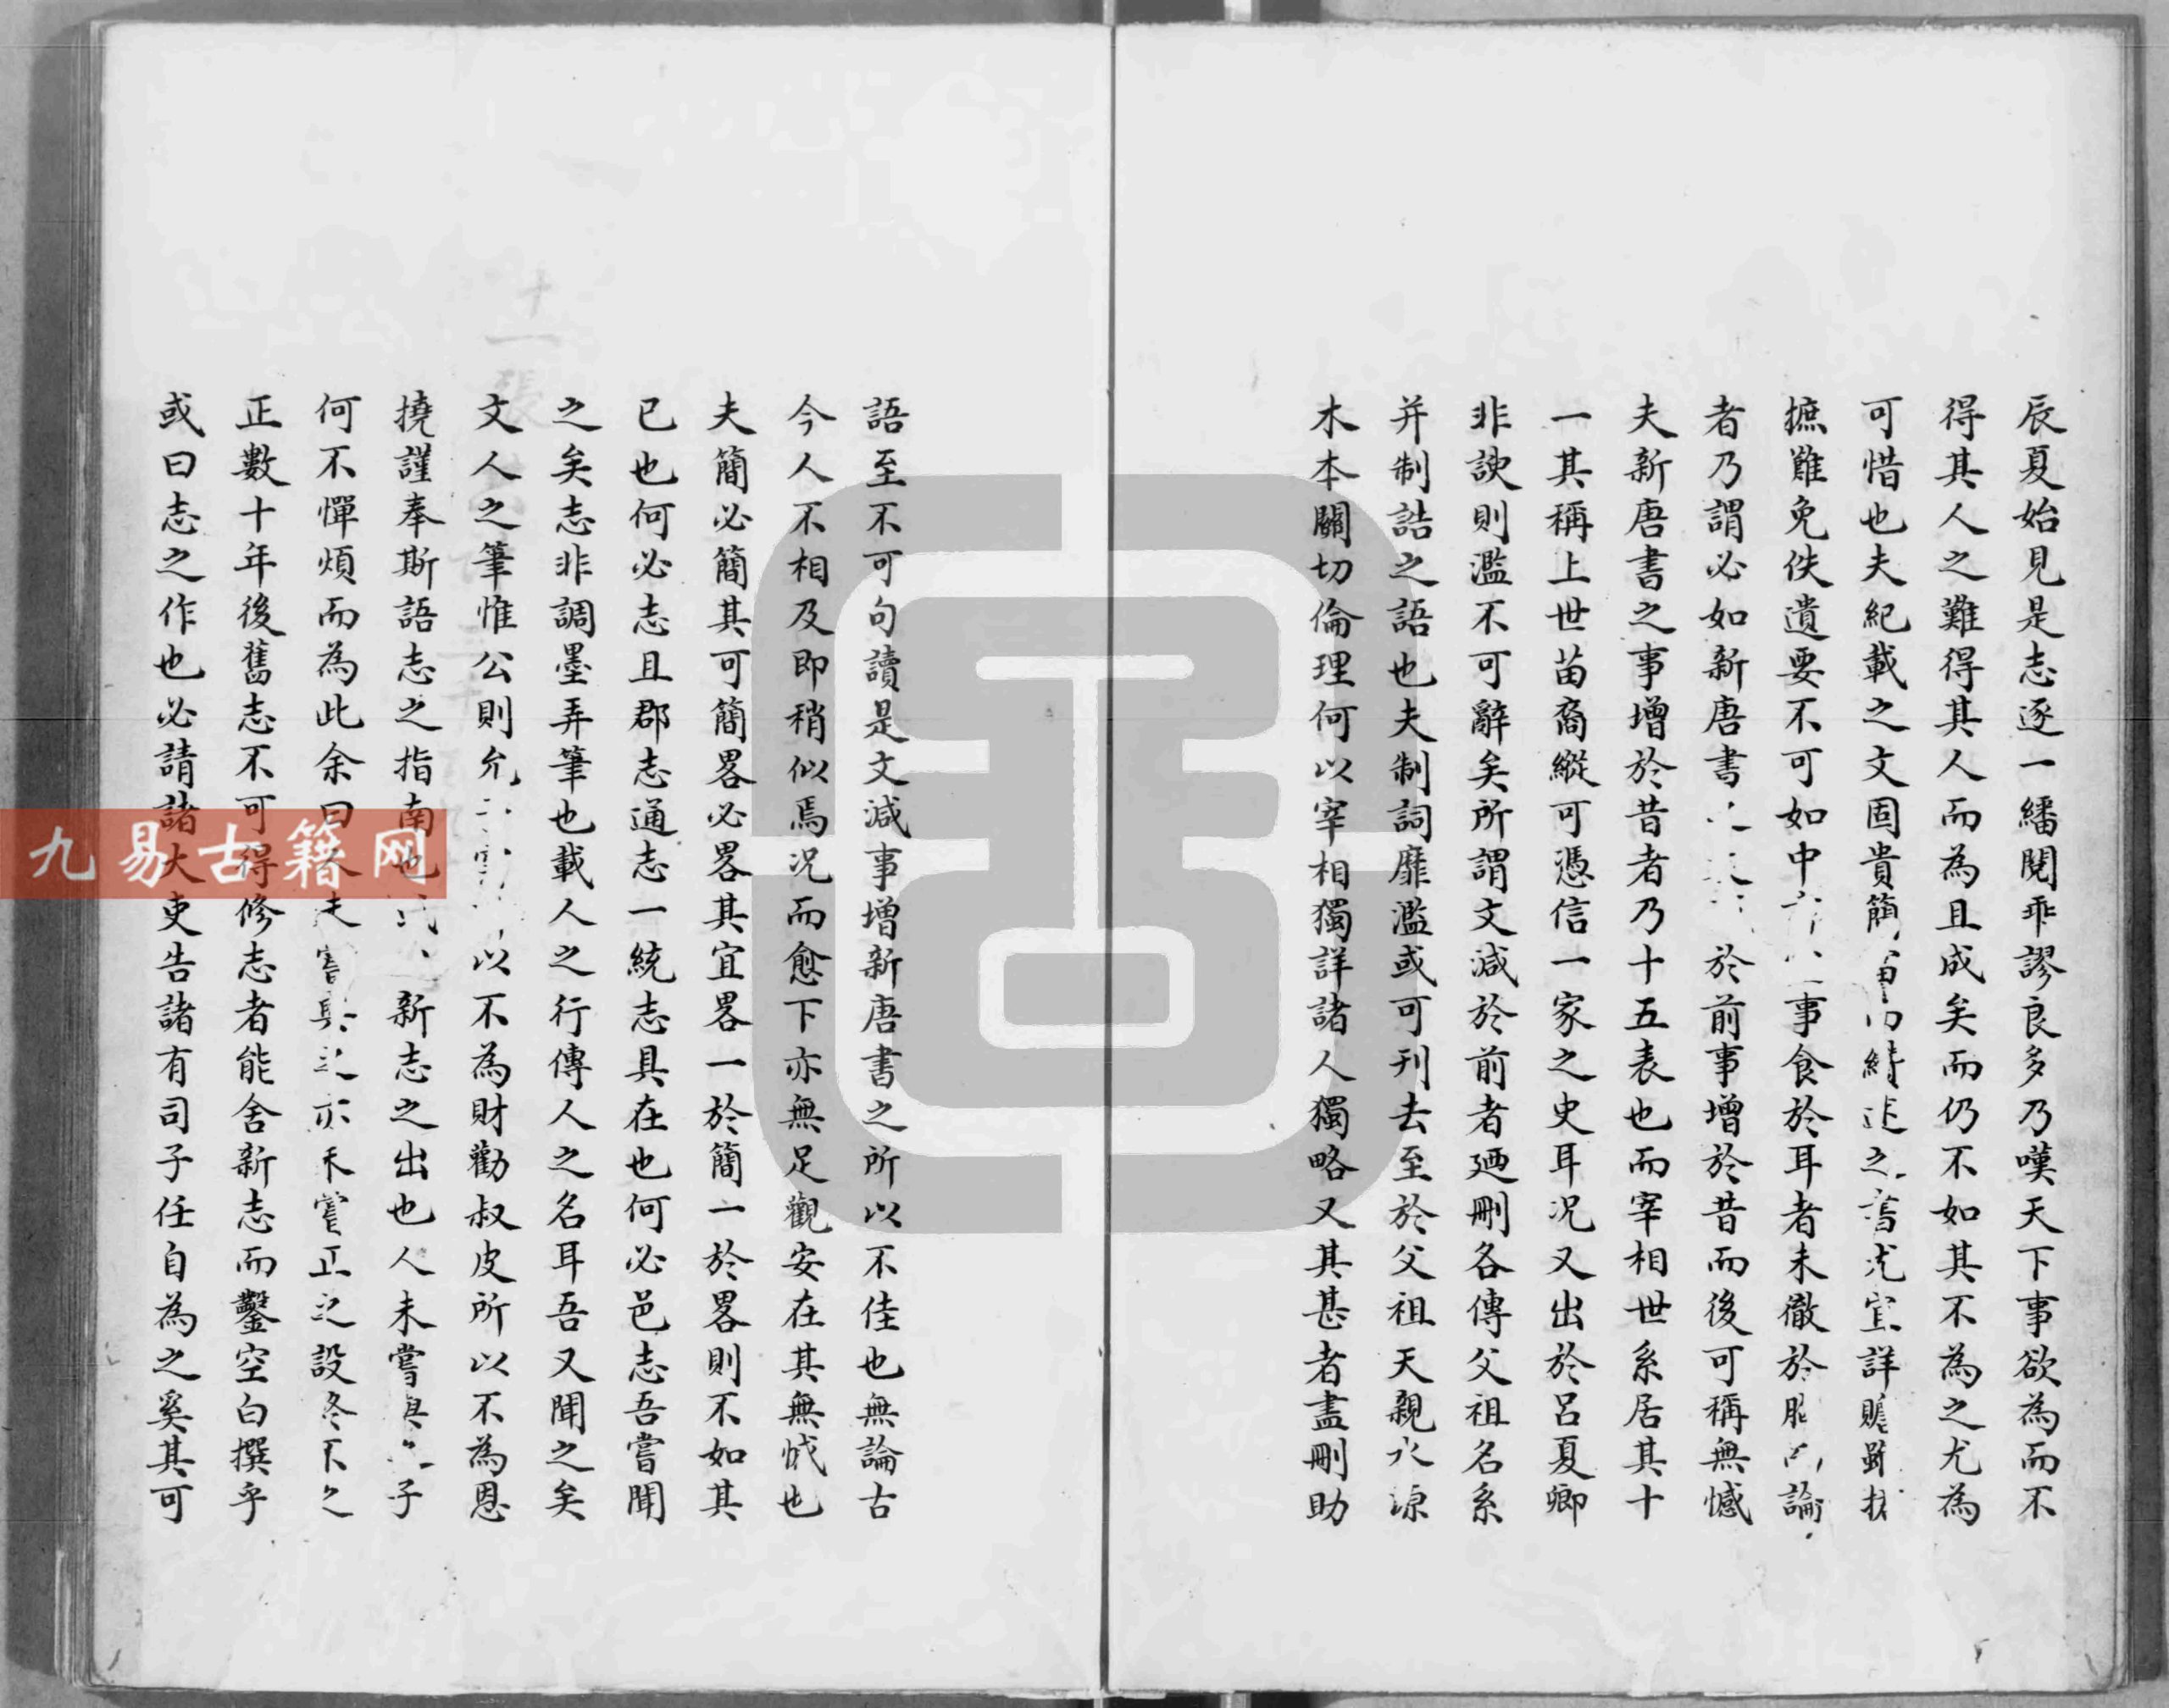 辰夏始見是志逐一繙閱乖謬良多乃嘆天下事欲為而不
得其人之難得其人而為且成矣而仍不如其不為之尤為
可惜也夫紀載之文固貴簡之書尤宜詳贍雖
摭難免佚遺要不可如中事食於耳者未徹於論
者乃謂必如新唐書於前事增於昔而後可稱無憾
夫新唐書之事增於昔者乃十五表也而宰相世系居其十
一其稱上世苗裔縱可憑信一家之史耳況又出於呂夏卿
非諛則濫不可辭矣所謂文減於前者廼刪各傳父祖名系
并制誥之語也夫制詞靡濫或可刊去至於父祖天親水源
木本關切倫理何以宰相獨詳諸人獨略又其甚者盡刪助
語至不可句讀是文減事增新唐書之所以不佳也無論古
今人不相及即稍似焉況而愈下亦無足觀安在其無憾也
夫簡必簡其可簡畧必畧其宜畧一於簡一於畧則不如其
已也何必志且郡志通志一統志具在也何必邑志吾嘗聞
之矣志非調墨弄筆也載人之行傳人之名耳吾又聞之矣
文人之筆惟公則允以不為財勸叔皮所以不為恩
撓謹奉斯語志之指南也新志之出也人未嘗子
何不憚煩而為此余曰亦未嘗正之設
正數十年後舊志不可得修志者能舍新志而鑿空白撰乎
或曰志之作也必請諸大吏告諸有司子任自為之奚其可
九易古籍网